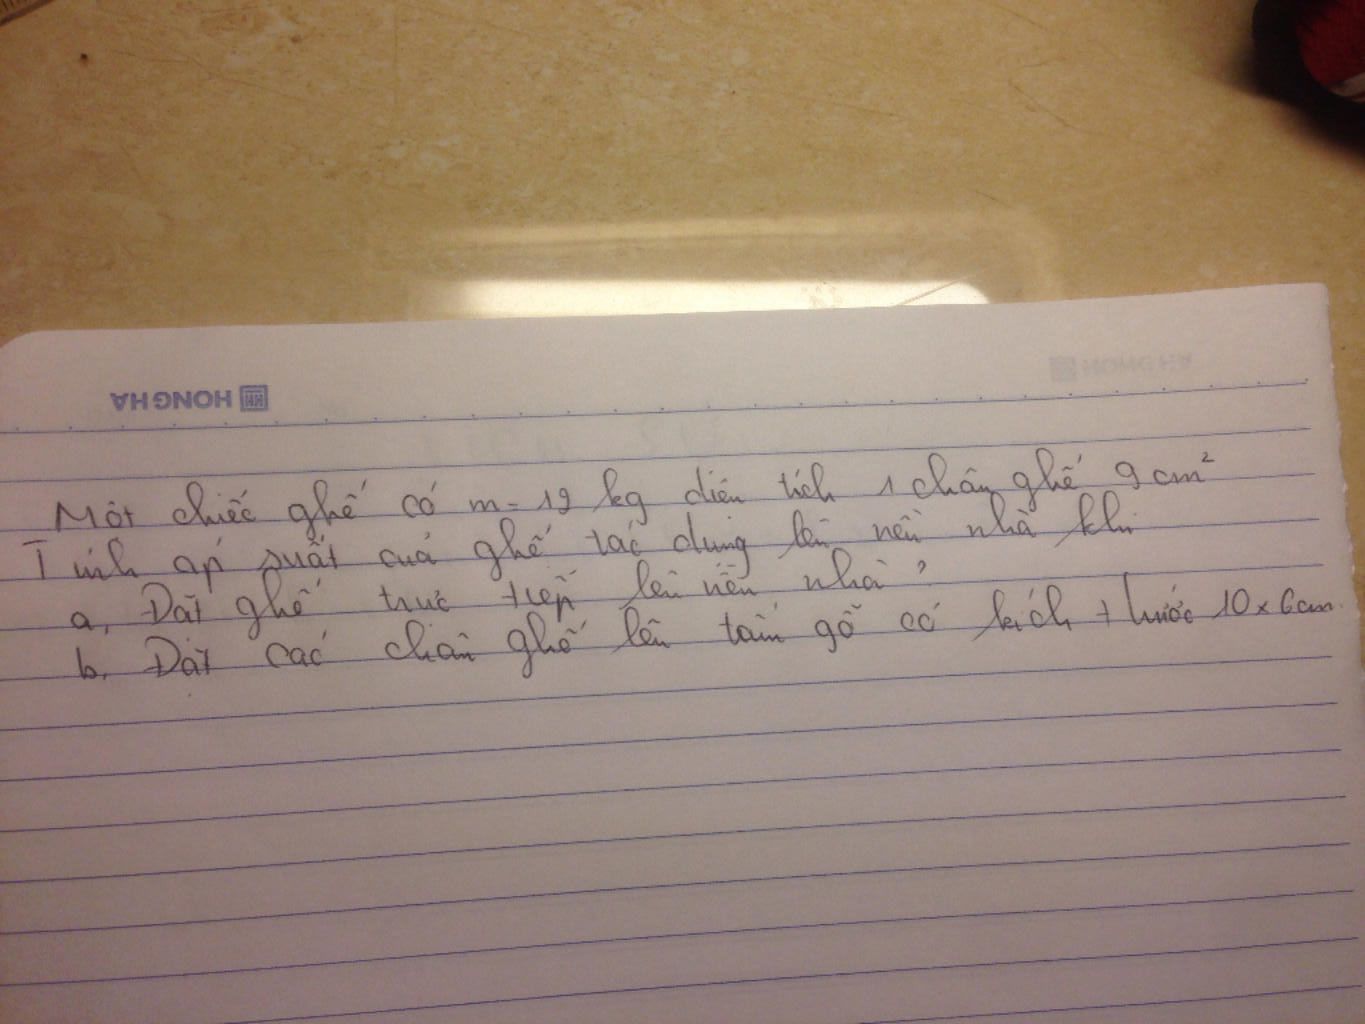 HONG HA
Một chiếc ghế có m = 12 kg diện tích 1 chân ghế 9 cm²
Tính áp suất của ghế tác dụng lên nền nhà khi
a, Đặt ghế trực tiếp lên nền nhà?
b, Đặt các chân ghế lên tấm gỗ có kích thước 10 x 6 cm.